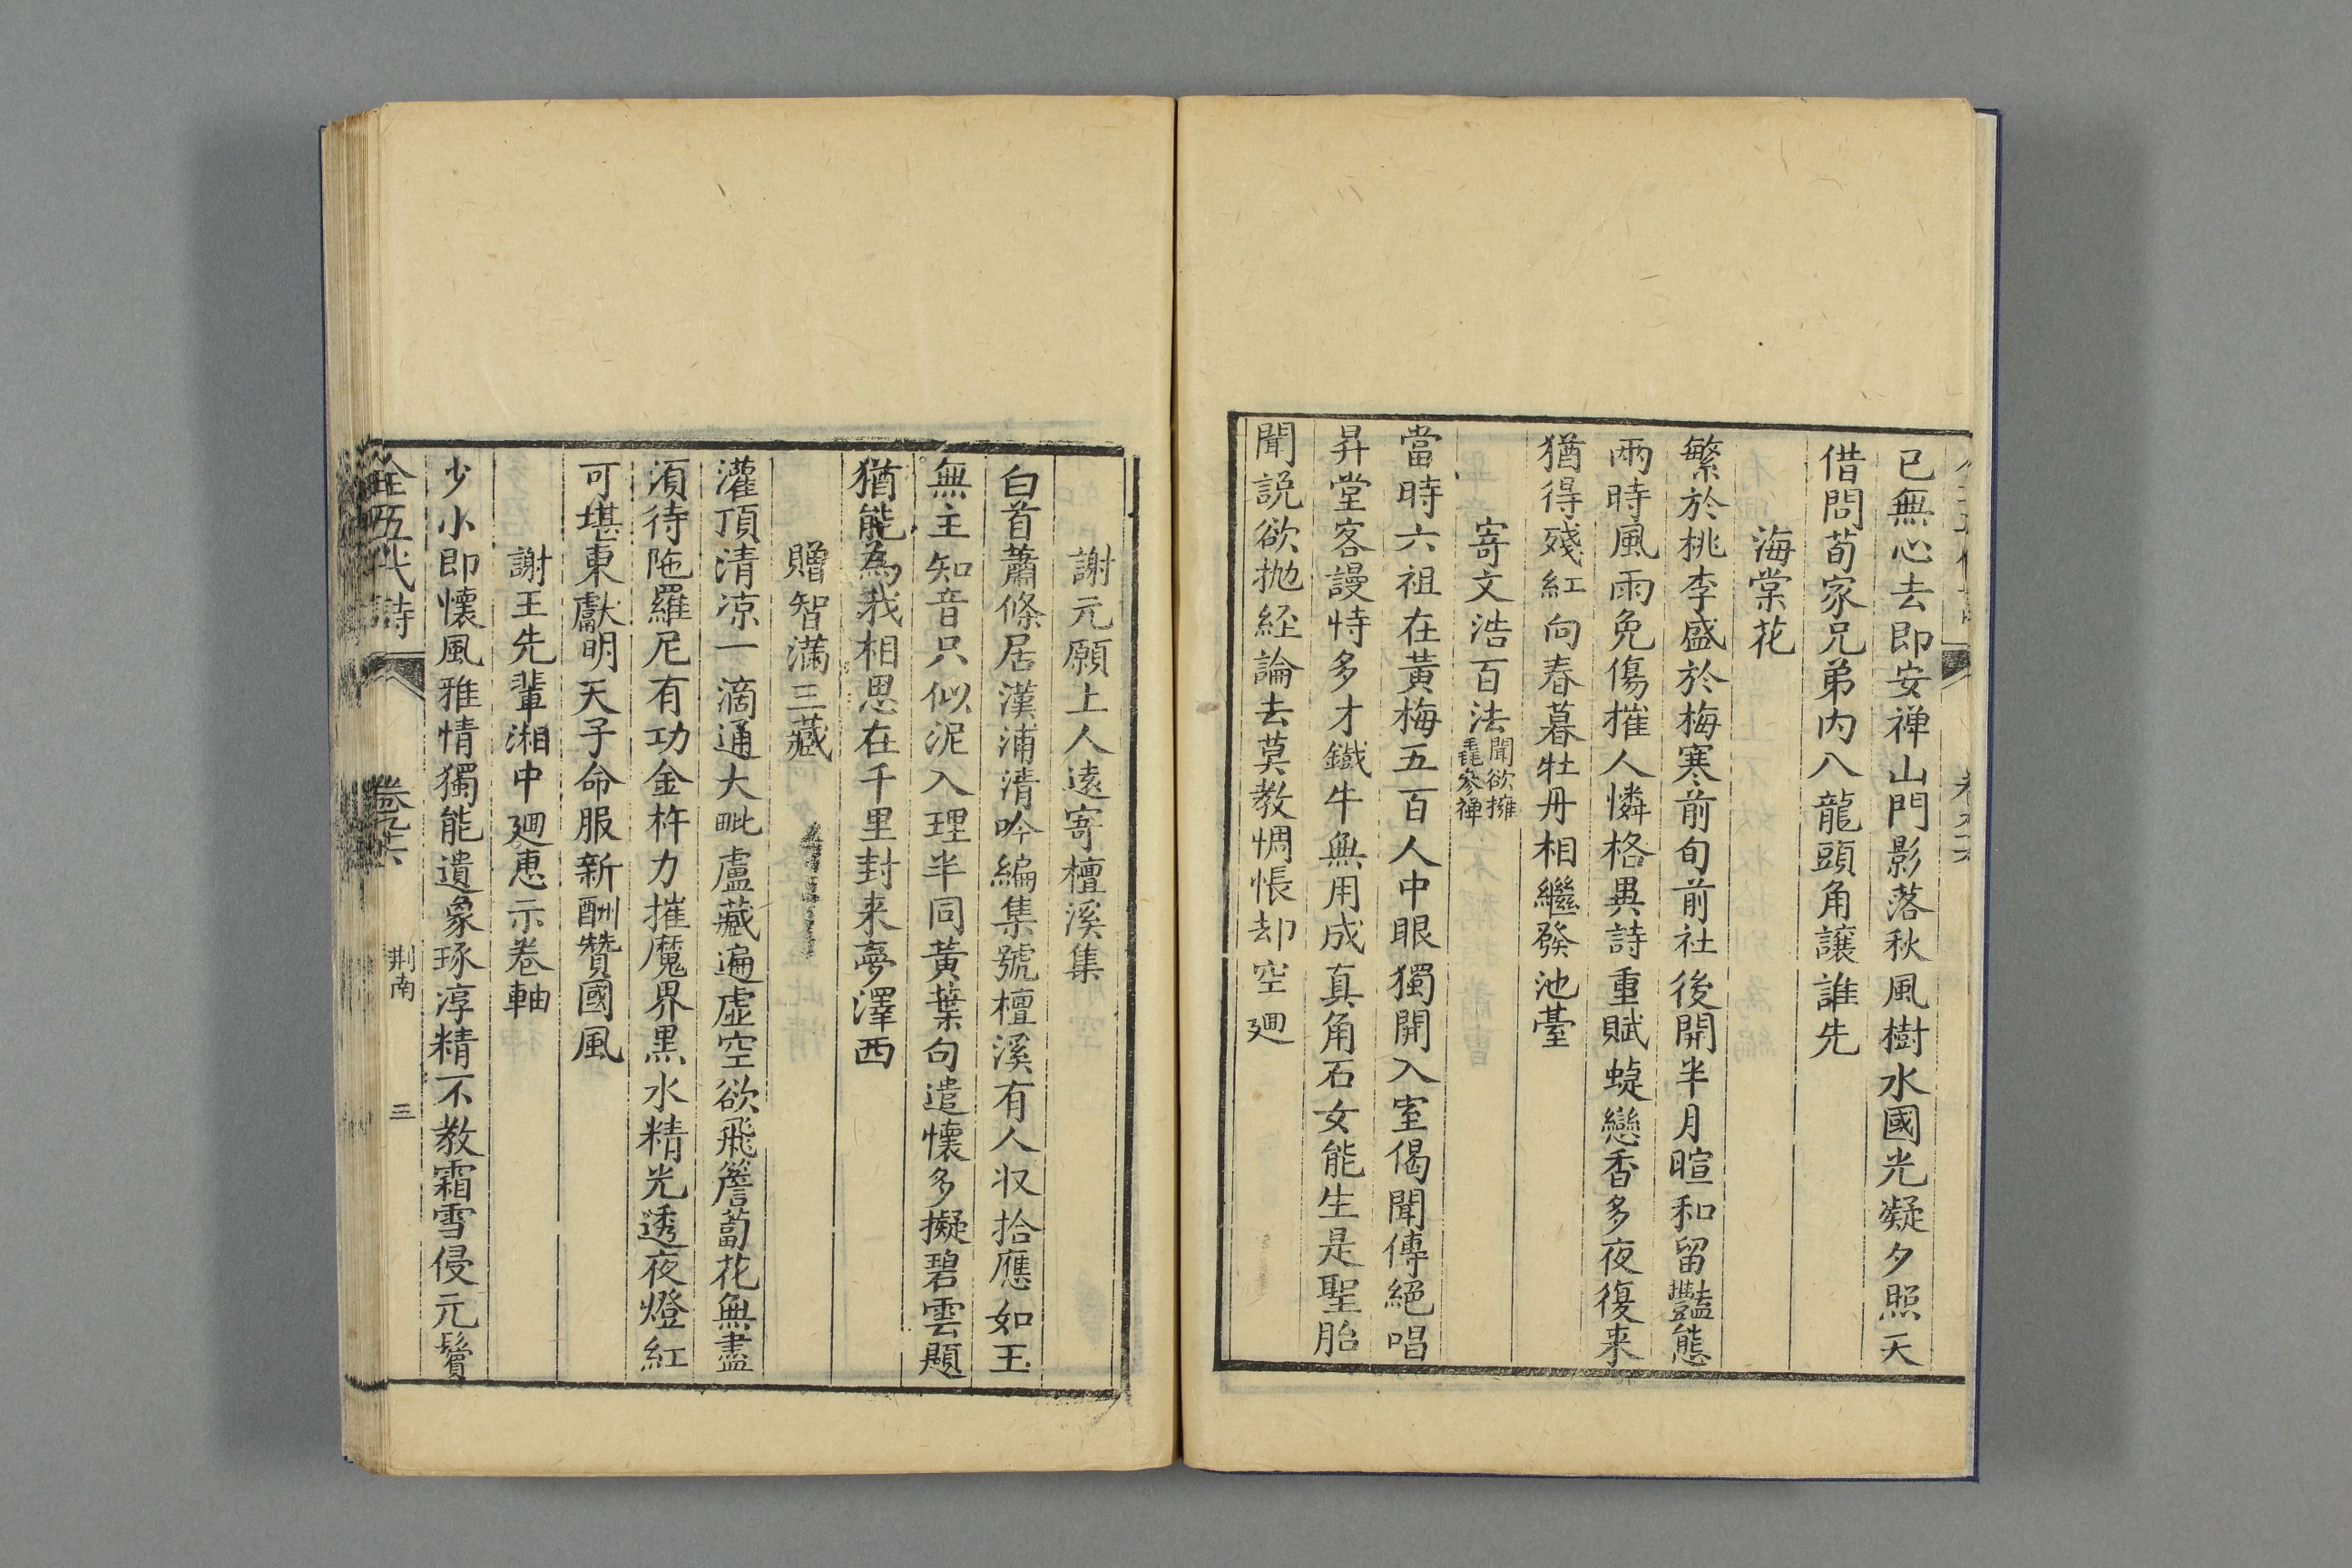 已無心去即安禅山門影落秋風樹水國光凝夕照天
借問荀家兄弟内八龍頭角讓誰先
海棠花
繁於桃李盛於梅寒前旬前社後開半月暄和留豔態
兩時風雨免傷摧人憐格異詩重賦蜨戀香多夜復来
猶得殘紅向春暮牡丹相繼發池臺
寄文浩百法聞欲擁毳參禅
當時六祖在黄梅五百人中眼獨開入室偈聞傳絕唱
昇堂客謾恃多才鐵牛無用成真角石女能生是聖胎
聞説欲抛經論去莫教惆悵却空廻
謝元願上人遠寄檀溪集
白首蕭條居漢浦清吟編集號檀溪有人収拾應如玉
無主知音只似泥入理半同黃葉句遣懷多擬碧雲題
猶能為我相思在千里封来夢澤西
贈智滿三藏
灌頂清凉一滴通大毗盧藏遍虚空欲飛簷蔔花無盡
湏待陁羅尼有功金杵力摧魔界黒水精光透夜燈紅
可堪東獻明天子命服新酬贊國風
謝王先輩湘中廻惠示卷軸
少小即懷風雅情獨能遺象琢淳精不教霜雪侵元鬢
全五代詩
卷六
荆南
三